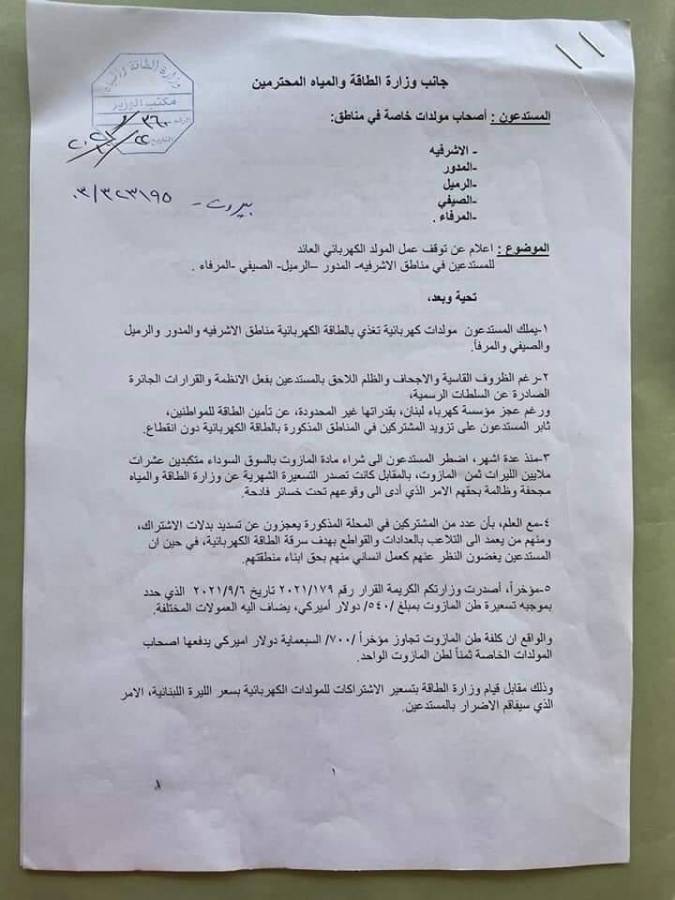 وزارة الطاقة والمياه
مكتب الوزير
جانب وزارة الطاقة والمياه المحترمين
المستدعون : أصحاب مولدات خاصة في مناطق:
- الاشرفيه
-المدور
-الرميل
-الصيفي
-المرفاء .
بيروت - ٠٣/٣٢٣١٩٥
الموضوع : اعلام عن توقف عمل المولد الكهربائي العائد
للمستدعين في مناطق الاشرفيه- المدور –الرميل- الصيفي -المرفاء .
تحية وبعد،
١-يملك المستدعون مولدات كهربائية تغذي بالطاقة الكهربائية مناطق الاشرفيه والمدور والرميل
والصيفي والمرفأ.
٢-رغم الظروف القاسية والاجحاف والظلم اللاحق بالمستدعين بفعل الانظمة والقرارات الجائرة
الصادرة عن السلطات الرسمية،
ورغم عجز مؤسسة كهرباء لبنان، بقدراتها غير المحدودة، عن تأمين الطاقة للمواطنين،
ثابر المستدعون على تزويد المشتركين في المناطق المذكورة بالطاقة الكهربائية دون انقطاع.
٣-منذ عدة اشهر، اضطر المستدعون الى شراء مادة المازوت بالسوق السوداء متكبدين عشرات
ملايين الليرات ثمن المازوت، بالمقابل كانت تصدر التسعيرة الشهرية عن وزارة الطاقة والمياه
مجحفة وظالمة بحقهم الامر الذي أدى الى وقوعهم تحت خسائر فادحة.
٤-مع العلم، بأن عدد من المشتركين في المحلة المذكورة يعجزون عن تسديد بدلات الاشتراك،
ومنهم من يعمد الى التلاعب بالعدادات والقواطع بهدف سرقة الطاقة الكهربائية، في حين ان
المستدعين يغضون النظر عنهم كعمل انساني منهم بحق ابناء منطقتهم.
٥-مؤخراً، أصدرت وزارتكم الكريمة القرار رقم ٢٠٢١/١٧٩ تاريخ ٢٠٢١/٩/٦ الذي حدد
بموجبه تسعيرة طن المازوت بمبلغ /٥٤٠/ دولار أميركي، يضاف اليه العمولات المختلفة.
والواقع ان كلفة طن المازوت تجاوز مؤخراً /٧٠٠/ السبعماية دولار اميركي يدفعها اصحاب
المولدات الخاصة ثمناً لطن المازوت الواحد.
وذلك مقابل قيام وزارة الطاقة بتسعير الاشتراكات للمولدات الكهربائية بسعر الليرة اللبنانية، الامر
الذي سيفاقم الاضرار بالمستدعين.
١